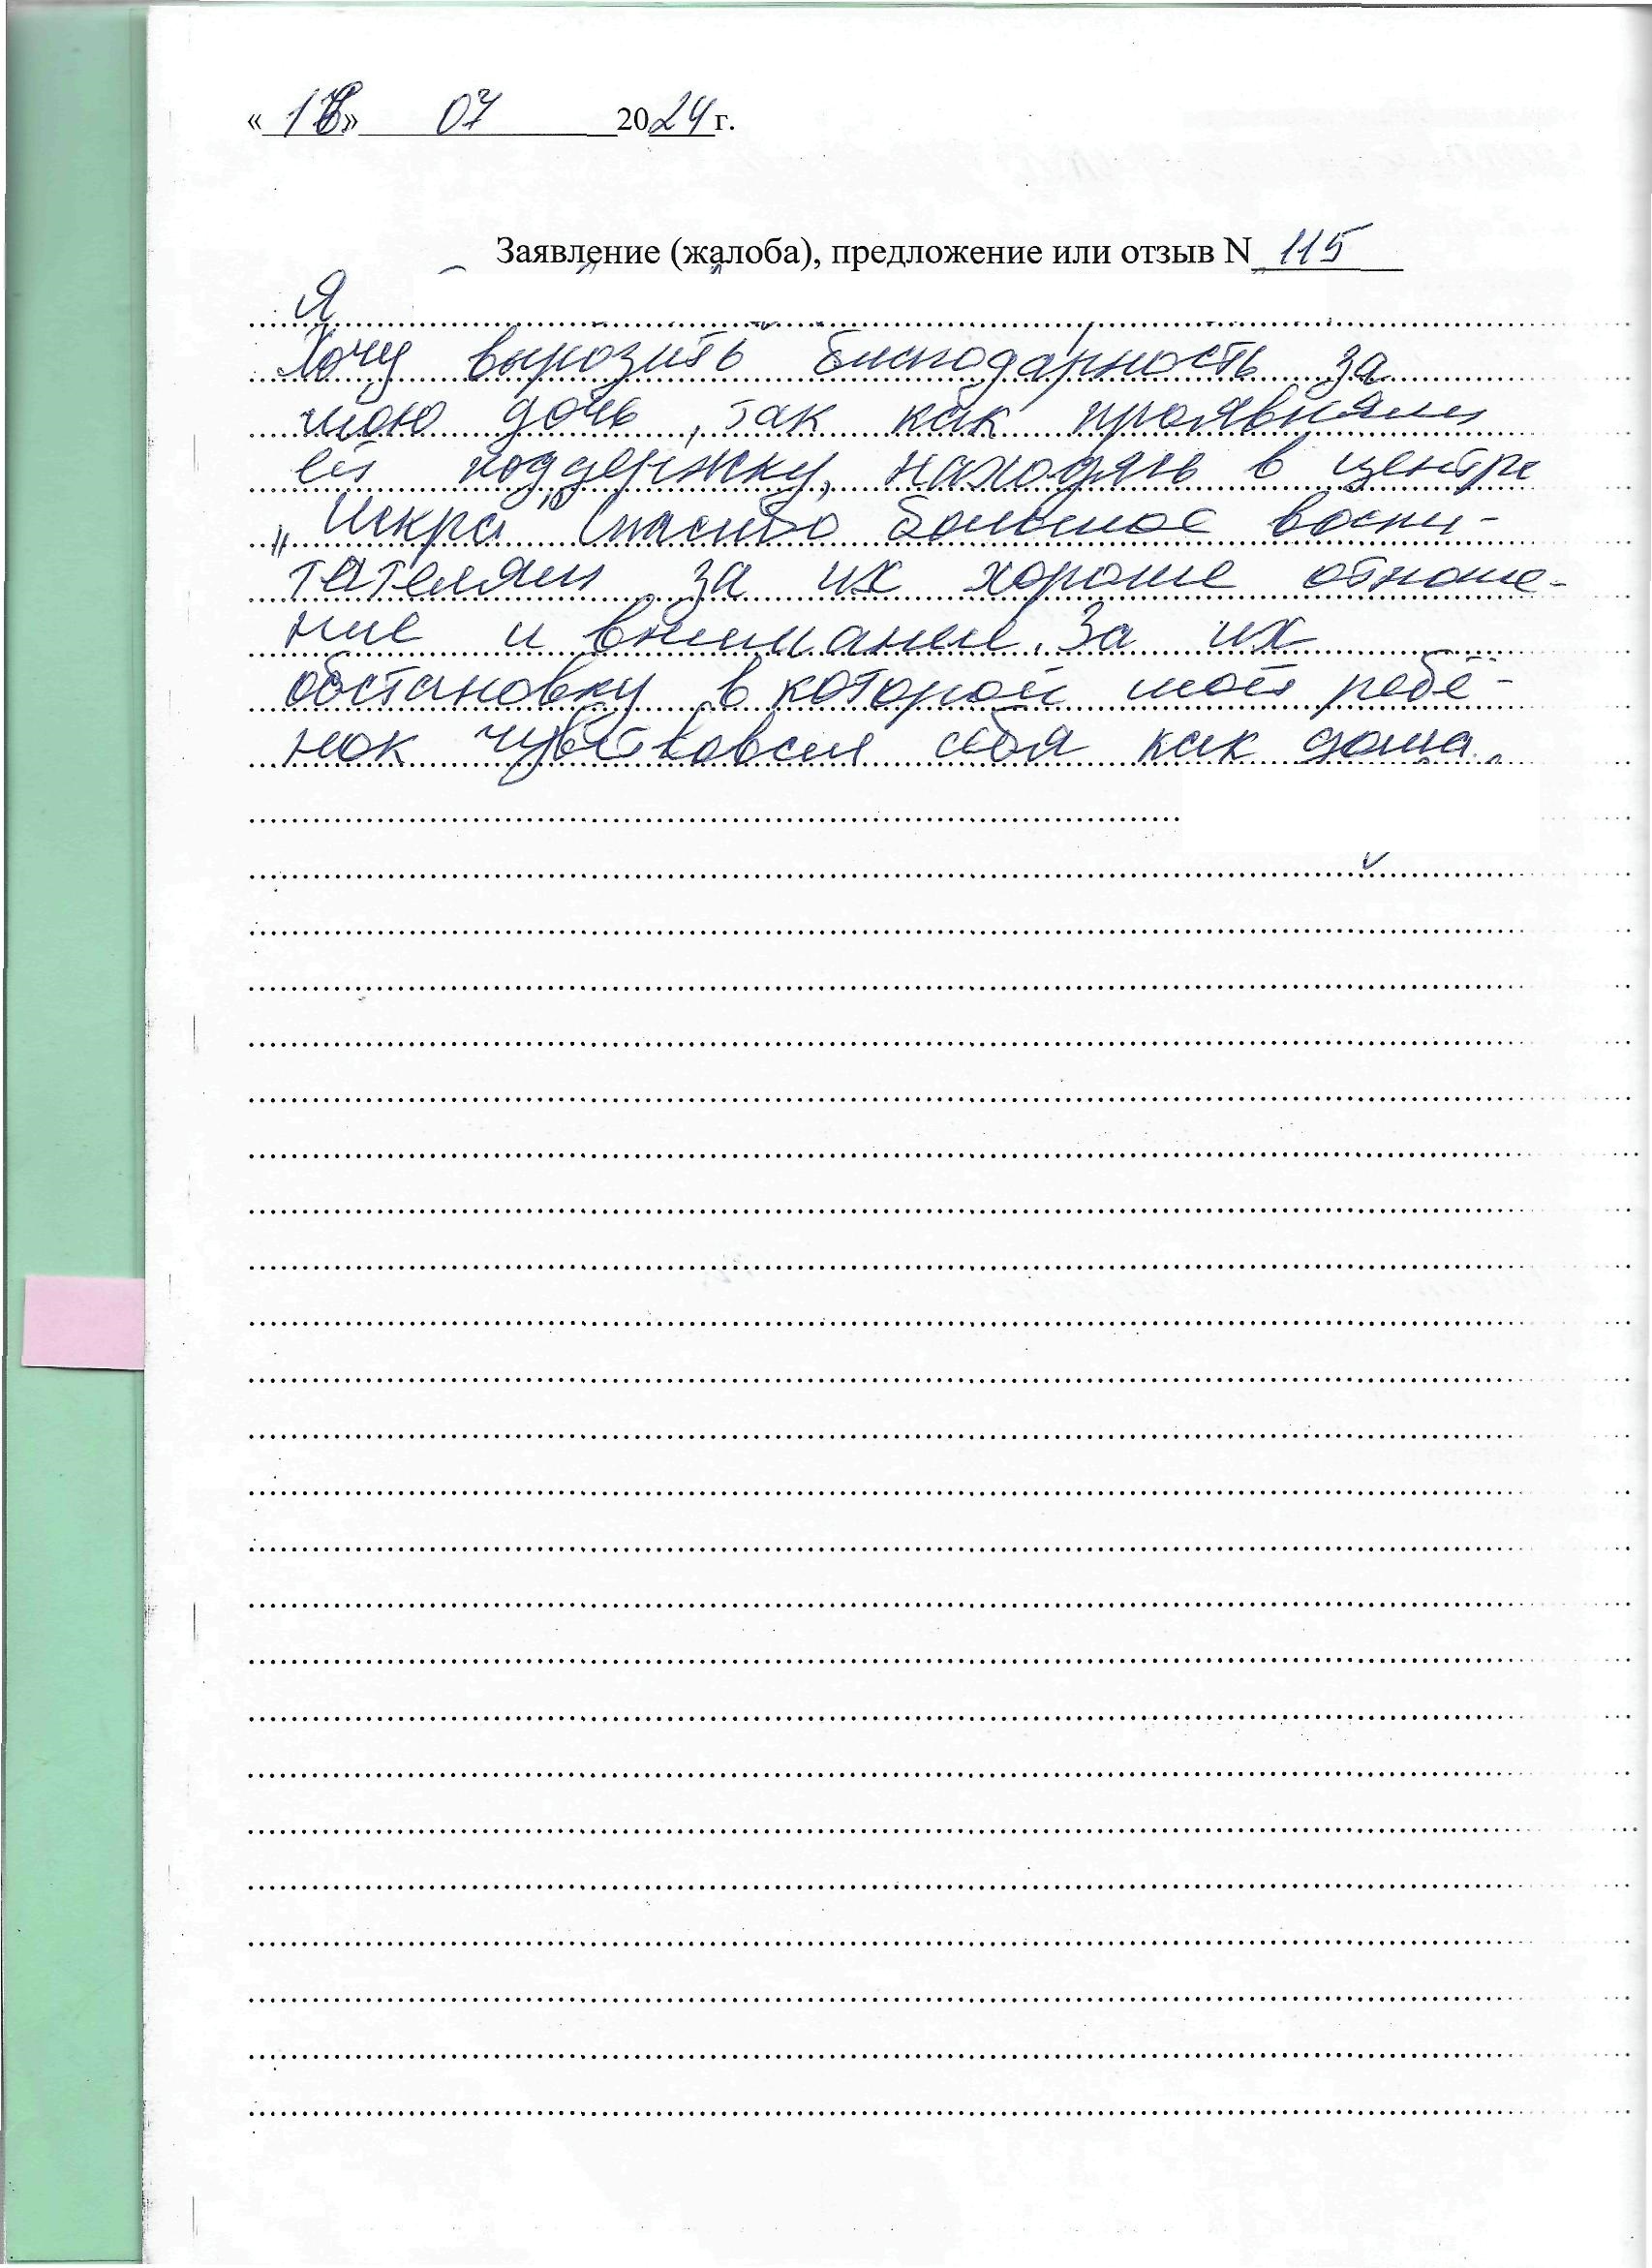 « 18 » 07 2024 г.
Заявление (жалоба), предложение или отзыв N 115
Я
Хочу выразить благодарность за
мою дочь, так как проявляли
ей поддержку, находясь в центре
„Искра" Спасибо большое воспи-
тателям за их хороше отноше-
ние и внимание. За их
обстановку в которой мой ребё-
нок чувствовал себя как дома.